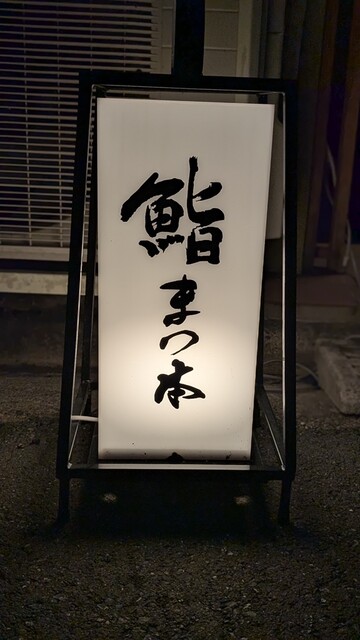 鮨まつ本